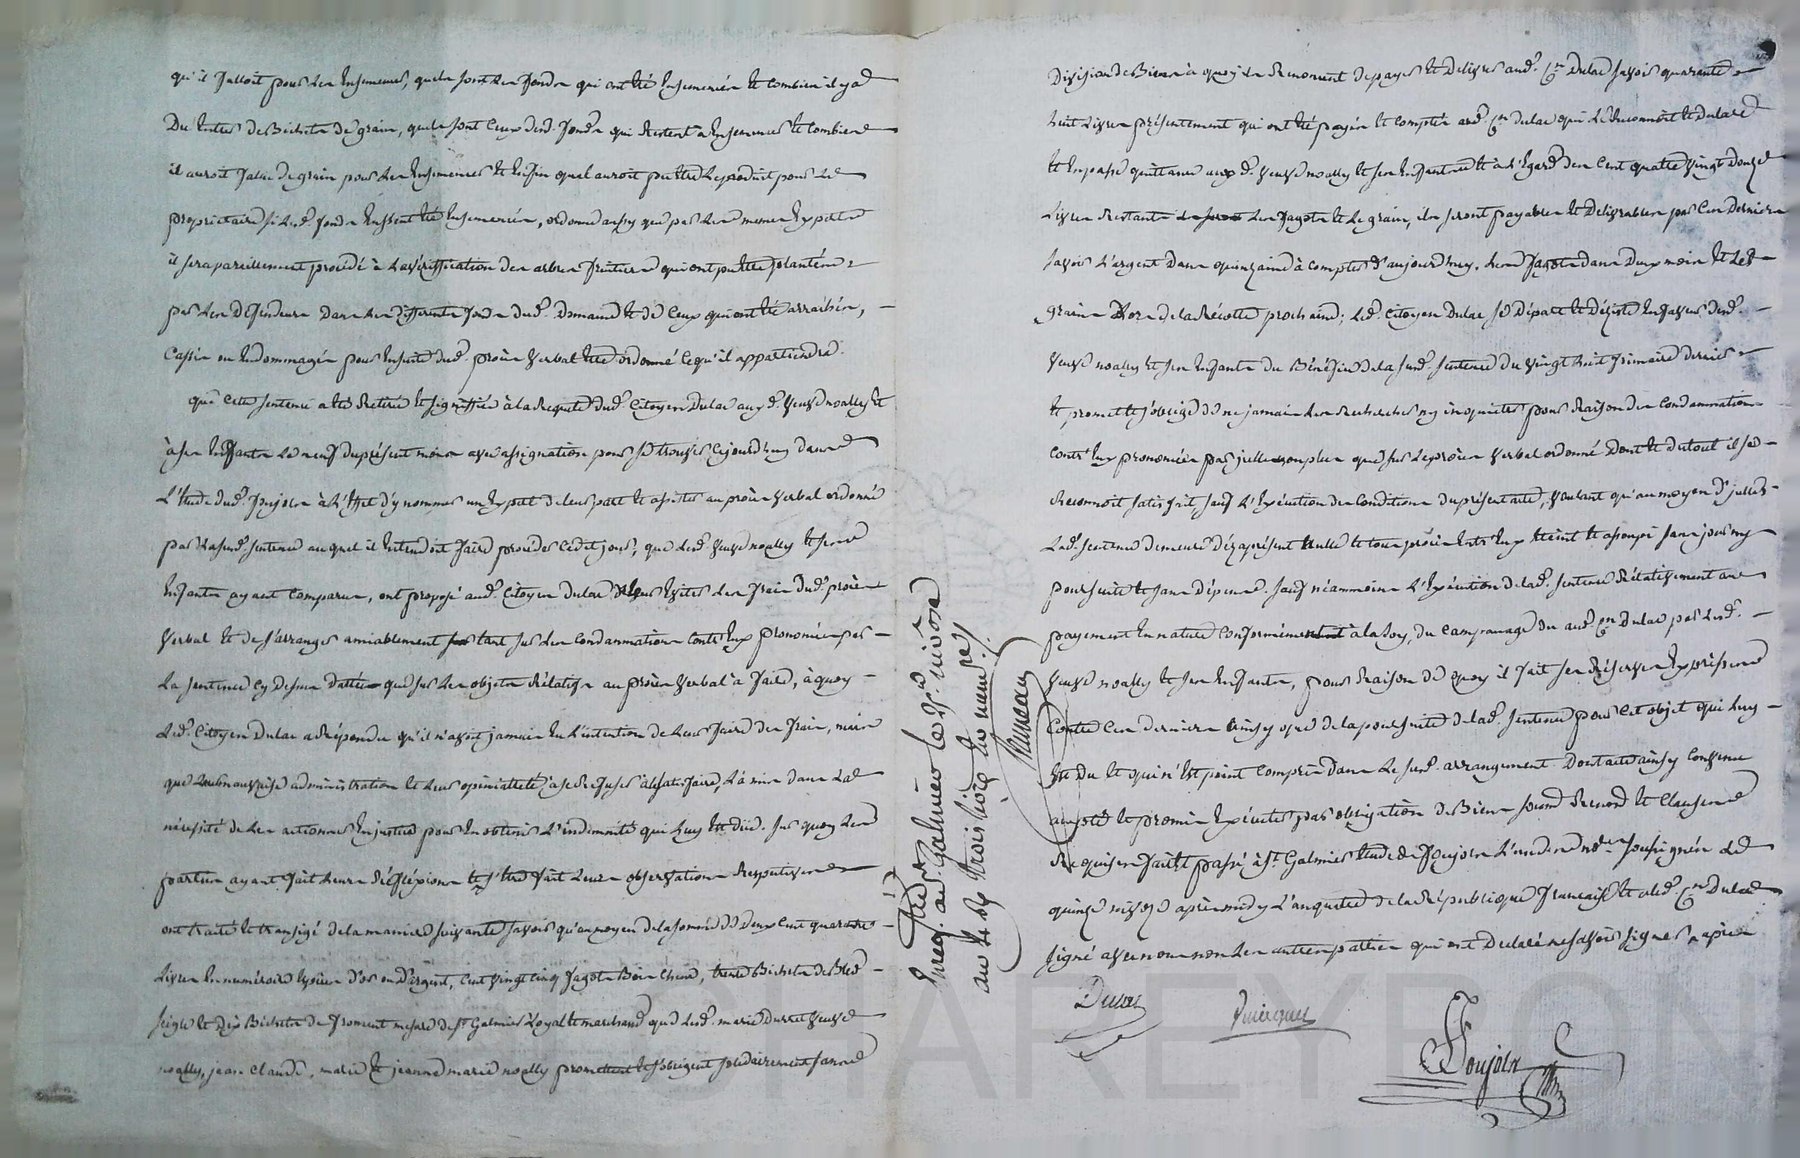 qu'il falloit pour les ensemencer, quels sont les fonds qui ont été ensemencés et combien il y a
du entrer de Bichets de grain, quels sont ceux desd. fonds qui restent a ensemencer et combien
il auroit falu de grain pour les ensemencer et enfin quel auroit pu être le produit pour le
propriétaire si lesd. fonds eussent été ensemencés, ordonne aussy que par les memes experts
il sera pareillement procédé à la vériffication des arbres fruitiers qui ont pu être plantés
par les deffendeurs dans les differents fonds dud. Domaine et de ceux qui ont été arrachés,
cassés ou endommagés pour ensuite dud. procès verbal être ordonné ce qu'il appartiendra.
que cette sentence a été retirée et signiffiée à la requete dud. Citoyen Dulac aux d. veuve noally et
à ses enffants le neuf du présent mois avec assignation pour se trouver cejourd'huy dans
l'étude dud. Poujols à l'effet d'y nommer un expert de leur part et assister au procès verbal ordonné
par lasusd. sentence auquel il entendoit faire procéder ledit jour, que lesd. veuve noally et ses
enfants ayant comparus, ont proposé aud. Citoyen dulac de leur éviter les frais dud. procès
verbal et de s'arranger amiablement tant sur les condamnations contr'eux prononcées par
la sentence cy dessus dattée que sur les objets rélatifs au procès verbal à faire, à quoy
led. Citoyen Dulac a répondu qu'il n'avoit jamais eu l'intention de leur faire des frais, mais
que leur mauvaise administration et leur opiniatreté à se refuser à le satisfaire, l'a mis dans la
nécessité de les actionner en justice pour en obtenir l'indemnité qui luy est düe. Sur quoy les
parties ayant fait leurs réfléxions et s'être fait leurs observations respectives
ont traité et transigé de la maniere suivante savoir qu'au moyen de la somme de deux cent quarante
livres en numéraire espèces d'or ou d'argent, cent vingt cinq fagots Bois chene, trente Bichets de Bled
seigle et dix Bichets de froment mesure de St. Galmier loyal et marchand que lesd. marie Durret veuve
noally, jean claude, marie et jeanne marie noally promettent et s'obligent solidairement sans
Enreg. au St. Galmier le 28 nivose
an 4. Rx trois livres en num.
Division de Biens à quoy ils renoncent de payer et délivrer aud. Cen. Dulac savoir quarante
huit Livres présentement qui ont été payées et comptées aud. Cen. dulac qui l'a reconnoit et déclaré
et en passe quittance aux d. veuve noally et ses enfants et à l'égard des cent quatre vingt douze
Livres restants les fagots et le grain, ils seront payables et délivrables par ces derniers
savoir l'argent dans quinzaine à compter d'aujourd'huy, les fagots dans deux mois et les
grains Lors de la récolte prochaine; led. citoyen Dulac se départ et désiste en faveur desd.
veuve noally et ses enfants du Bénéfice de la susd. sentence du vingt huit frimaire dernier
et promet et s'oblige de ne jamais les rechercher ny inquieter pour raison des condamnations
contr'eux prononcées par icelle non plus que sur le procès verbal ordonné dont et du tout il se
reconnoit satisfait, sauf l'exécution des conditions du présent acte, voulant qu'au moyen d'icelles
lad. sentence demeure dèzaprésent nulle et tous procès entr'eux éteint et assoupi sans pouvoir
poursuite et sans dépens. Sauf néammoins l'exécution de lad. sentence rélativement au
payement en nature conformément à la loy, du campanage du aud. Cen. Dulac par lesd.
veuve noally et ses enfants, pour raison de quoy il fait ses réserves expresses
contre ces derniers ainsy que de la poursuite de lad. sentence pour cet objet qui luy
est du et qui n'est point compris dans le susd. arrangement. Dont acte ainsy convenu
accepté et promis exécuter par obligation de Biens soumis. Renonc. et Clauses
Requises fait et passé à St. Galmier étude de Poujols l'un des nres. soussignés le
quinze nivose après midy l'an quatre de la république francaise et a led. Cen. Dulac
signé avec nous non les autres parties qui ont declaré ne savoir signer
Dulac
Poujols